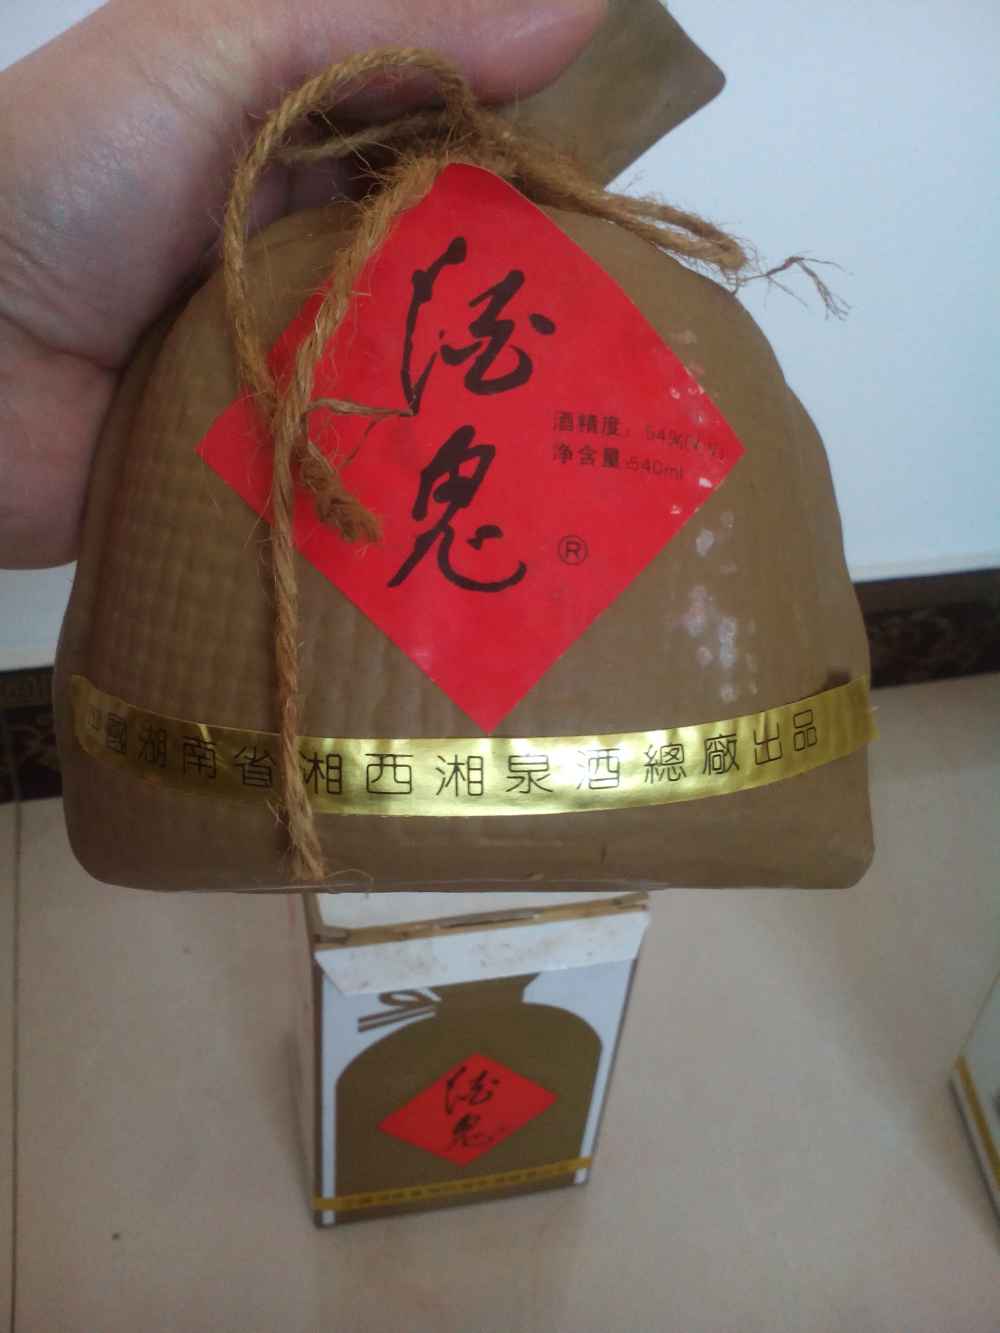 酒
鬼
酒精度：54%(V/V)
净含量:540ml
®
中國湖南省湘西湘泉酒總廠出品
酒
鬼